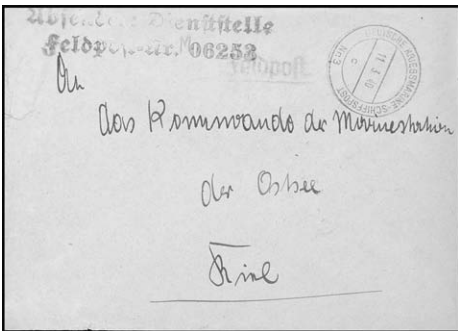 Absendende Dienststelle
Feldpost-Nr. M 06253
Feldpost
DEUTSCHE KRIEGSMARINE-SCHIFFSPOST
11.3.40
c
An
das Kommando der Marinestation
der Ostsee
Kiel